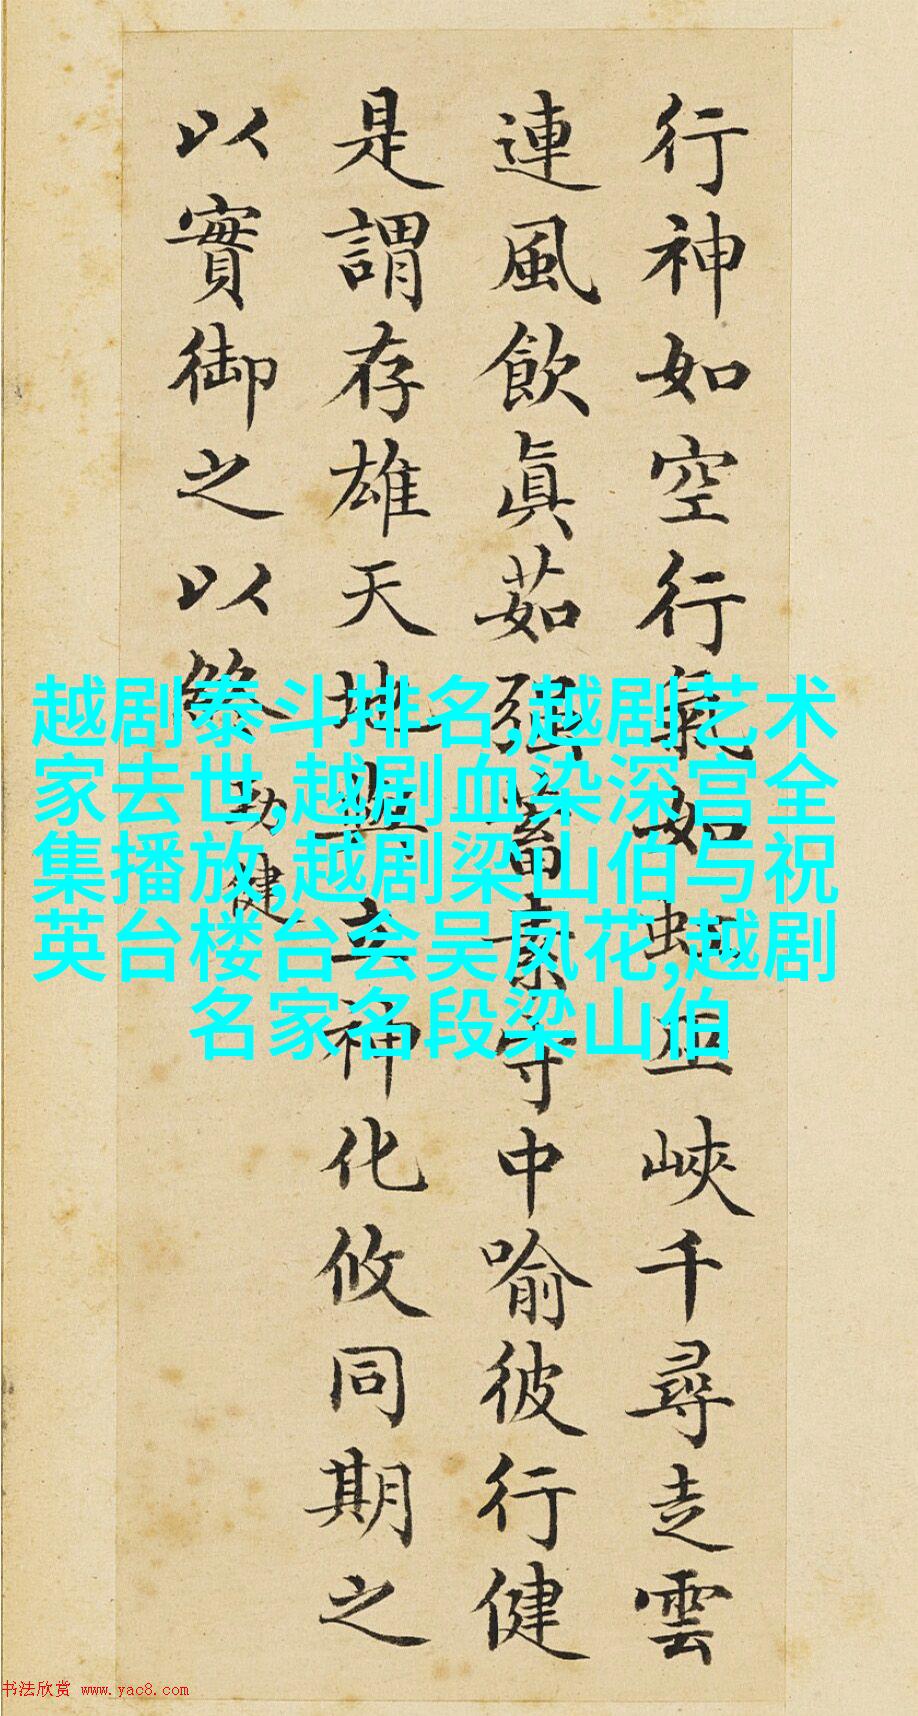 行神如空行氣如虹巫峽千尋走雲
連風飲眞茹强蓄素守中喻彼行健
是謂存雄天地與立神化攸同期之
以實御之以終
勁健
越剧泰斗排名,越剧艺术
家去世,越剧血染深宫全
集播放,越剧梁山伯与祝
英台楼台会吴凤花,越剧
名家名段梁山伯
书法欣赏 www.yac8.com